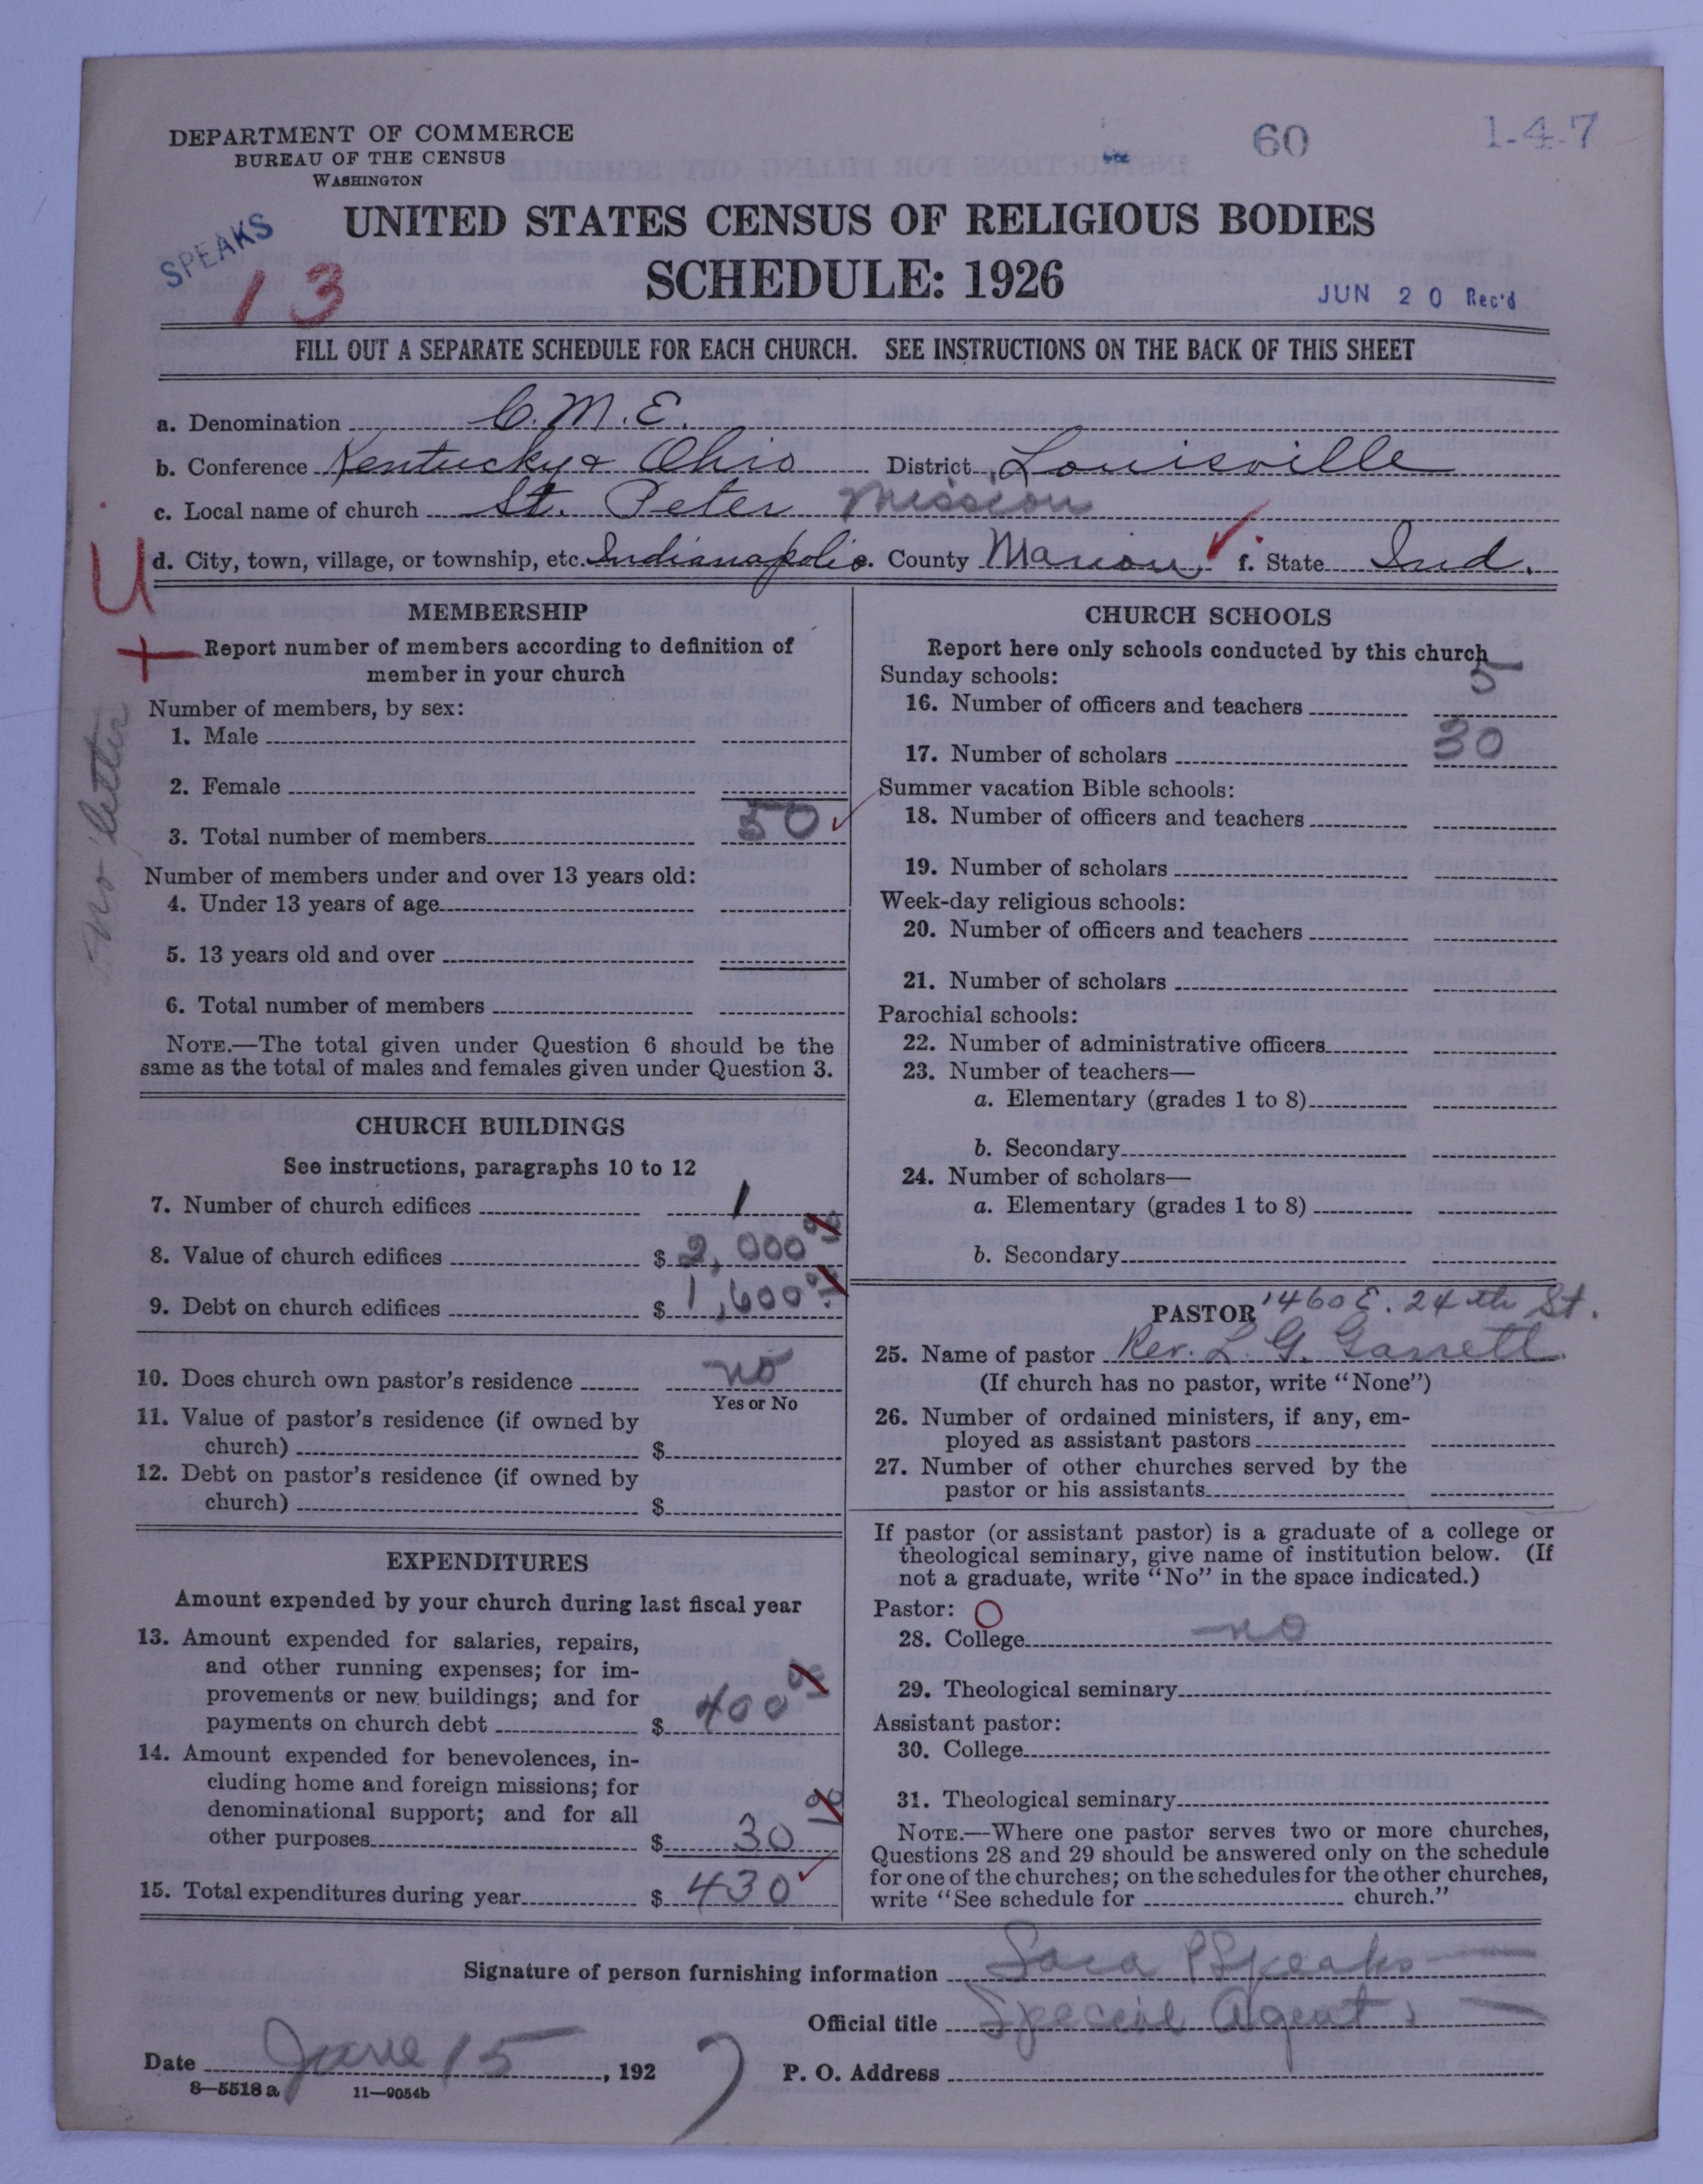 DEPARTMENT OF COMMERCE
BUREAU OF THE CENSUS
WASHINGTON
60
1-4-7
SPEAKS
13
UNITED STATES CENSUS OF RELIGIOUS BODIES
SCHEDULE: 1926
JUN 20 Rec'd
FILL OUT A SEPARATE SCHEDULE FOR EACH CHURCH. SEE INSTRUCTIONS ON THE BACK OF THIS SHEET
a. Denomination C.M.E.
b. Conference Kentucky & Ohio District Louisville
c. Local name of church St. Peter Mission
d. City, town, village, or township, etc. Indianapolis e. County Marion f. State Ind.
U
+
no letter
MEMBERSHIP
Report number of members according to definition of
member in your church
Number of members, by sex:
1. Male
2. Female
3. Total number of members 50
Number of members under and over 13 years old:
4. Under 13 years of age
5. 13 years old and over
6. Total number of members
NOTE.—The total given under Question 6 should be the
same as the total of males and females given under Question 3.
CHURCH BUILDINGS
See instructions, paragraphs 10 to 12
7. Number of church edifices 1
8. Value of church edifices $ 2,000 00
9. Debt on church edifices $ 1,600 00
10. Does church own pastor's residence no
Yes or No
11. Value of pastor's residence (if owned by
church) $
12. Debt on pastor's residence (if owned by
church) $
EXPENDITURES
Amount expended by your church during last fiscal year
13. Amount expended for salaries, repairs,
and other running expenses; for im-
provements or new buildings; and for
payments on church debt $ 400 00
14. Amount expended for benevolences, in-
cluding home and foreign missions; for
denominational support; and for all
other purposes $ 30 00
15. Total expenditures during year $ 430
CHURCH SCHOOLS
Report here only schools conducted by this church
Sunday schools:
16. Number of officers and teachers 5
17. Number of scholars 30
Summer vacation Bible schools:
18. Number of officers and teachers
19. Number of scholars
Week-day religious schools:
20. Number of officers and teachers
21. Number of scholars
Parochial schools:
22. Number of administrative officers
23. Number of teachers—
a. Elementary (grades 1 to 8)
b. Secondary
24. Number of scholars—
a. Elementary (grades 1 to 8)
b. Secondary
PASTOR 1460 E. 24th St.
25. Name of pastor Rev. L. G. Garrett
(If church has no pastor, write "None")
26. Number of ordained ministers, if any, em-
ployed as assistant pastors
27. Number of other churches served by the
pastor or his assistants
If pastor (or assistant pastor) is a graduate of a college or
theological seminary, give name of institution below. (If
not a graduate, write "No" in the space indicated.)
Pastor: O
28. College no
29. Theological seminary
Assistant pastor:
30. College
31. Theological seminary
NOTE.—Where one pastor serves two or more churches,
Questions 28 and 29 should be answered only on the schedule
for one of the churches; on the schedules for the other churches,
write "See schedule for church."
Signature of person furnishing information Sara P Speaks
Official title Special Agent
Date June 15, 1927 P. O. Address
8—5518 a 11—9054b